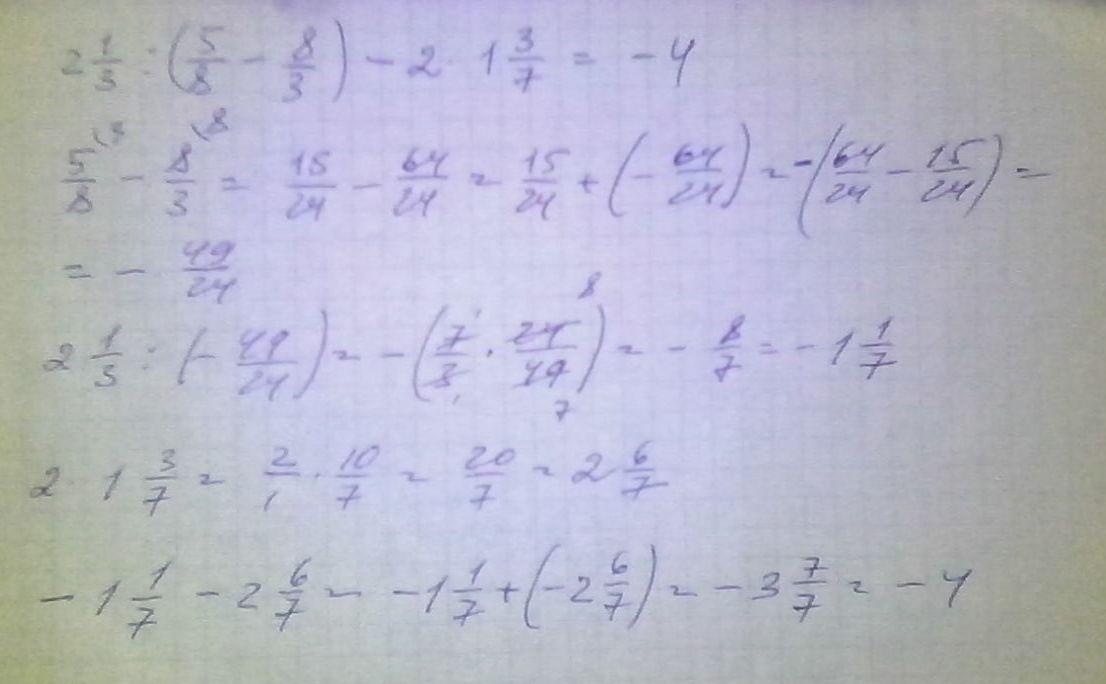 2 1/3 : (5/8 - 8/3) - 2 · 1 3/7 = -4
5/8 (3 - 8/3 (8 = 15/24 - 64/24 = 15/24 + (- 64/24) = -(64/24 - 15/24) =
= - 49/24
2 1/3 : (- 49/24) = -(7/3 · 24/49) = - 8/7 = -1 1/7
2 · 1 3/7 = 2/1 · 10/7 = 20/7 = 2 6/7
-1 1/7 - 2 6/7 = -1 1/7 + (-2 6/7) = -3 7/7 = -4